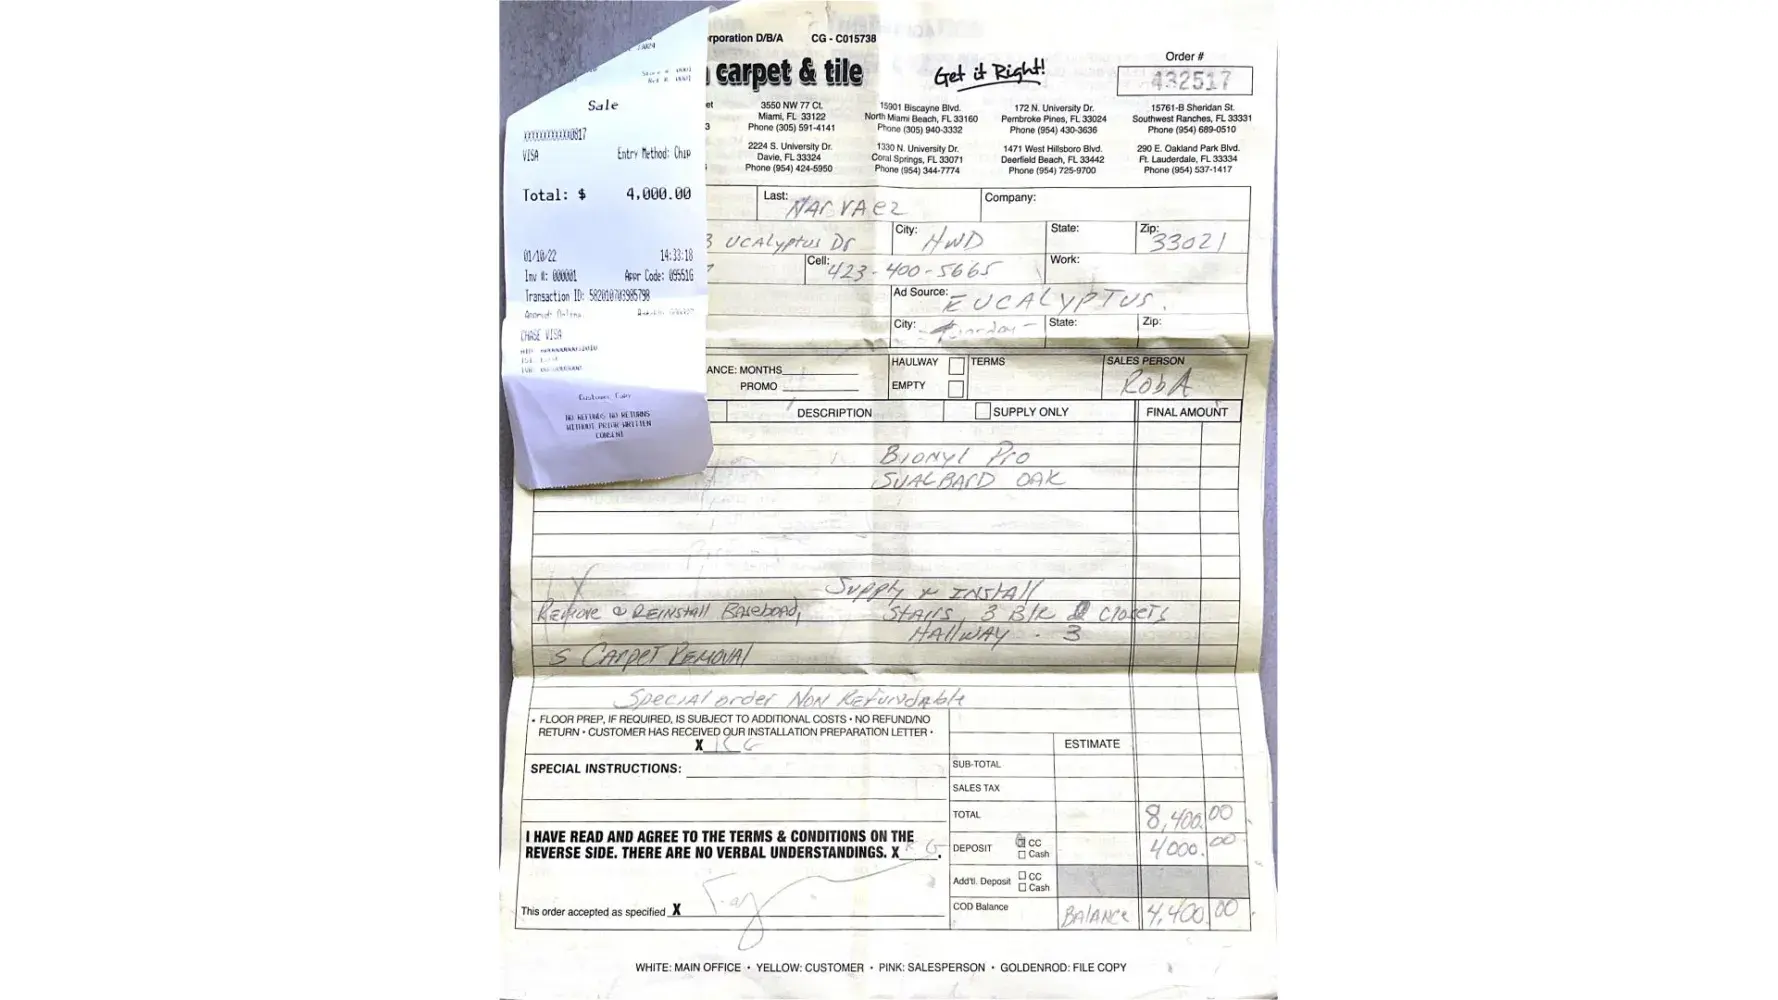 Sale
XXXXXXXXXXXX0817
VISA Entry Method: Chip
Total: $ 4,000.00
01/10/22 14:33:18
Inv #: 000001 Appr Code: 09551G
Transaction ID: 582010703985798
CHASE VISA
Customer Copy
NO REFUNDS NO RETURNS
WITHOUT PRIOR WRITTEN
CONSENT
rporation D/B/A CG - C015738
carpet & tile
Get it Right!
Order #
432517
3550 NW 77 Ct.
Miami, FL 33122
Phone (305) 591-4141
15901 Biscayne Blvd.
North Miami Beach, FL 33160
Phone (305) 940-3332
172 N. University Dr.
Pembroke Pines, FL 33024
Phone (954) 430-3636
15761-B Sheridan St.
Southwest Ranches, FL 33331
Phone (954) 689-0510
2224 S. University Dr.
Davie, FL 33324
Phone (954) 424-5950
1330 N. University Dr.
Coral Springs, FL 33071
Phone (954) 344-7774
1471 West Hillsboro Blvd.
Deerfield Beach, FL 33442
Phone (954) 725-9700
290 E. Oakland Park Blvd.
Ft. Lauderdale, FL 33334
Phone (954) 537-1417
Last: NArVAez Company:
3 UCALyptus Dr City: HWD State: Zip: 33021
Cell: 423-400-5665 Work:
Ad Source: EUCALYPTUS.
City: State: Zip:
ANCE: MONTHS HAULWAY TERMS SALES PERSON
PROMO EMPTY RobA
DESCRIPTION SUPPLY ONLY FINAL AMOUNT
Bionyl Pro
SVALBARD OAK
Supply & INStAll
Remove & REINStAll Baseboad, StAirs, 3 B/R closets
HAllWAY - 3
S CArpeT REMOVAl
SpeciAl order NoN RefundAble
• FLOOR PREP, IF REQUIRED, IS SUBJECT TO ADDITIONAL COSTS • NO REFUND/NO
RETURN • CUSTOMER HAS RECEIVED OUR INSTALLATION PREPARATION LETTER •
X RG
ESTIMATE
SPECIAL INSTRUCTIONS:
SUB-TOTAL
SALES TAX
TOTAL 8,400.00
I HAVE READ AND AGREE TO THE TERMS & CONDITIONS ON THE
REVERSE SIDE. THERE ARE NO VERBAL UNDERSTANDINGS. X RG.
DEPOSIT CC Cash 4000.00
Add'tl. Deposit CC Cash
This order accepted as specified X
COD Balance BAlANce 4,400.00
WHITE: MAIN OFFICE • YELLOW: CUSTOMER • PINK: SALESPERSON • GOLDENROD: FILE COPY